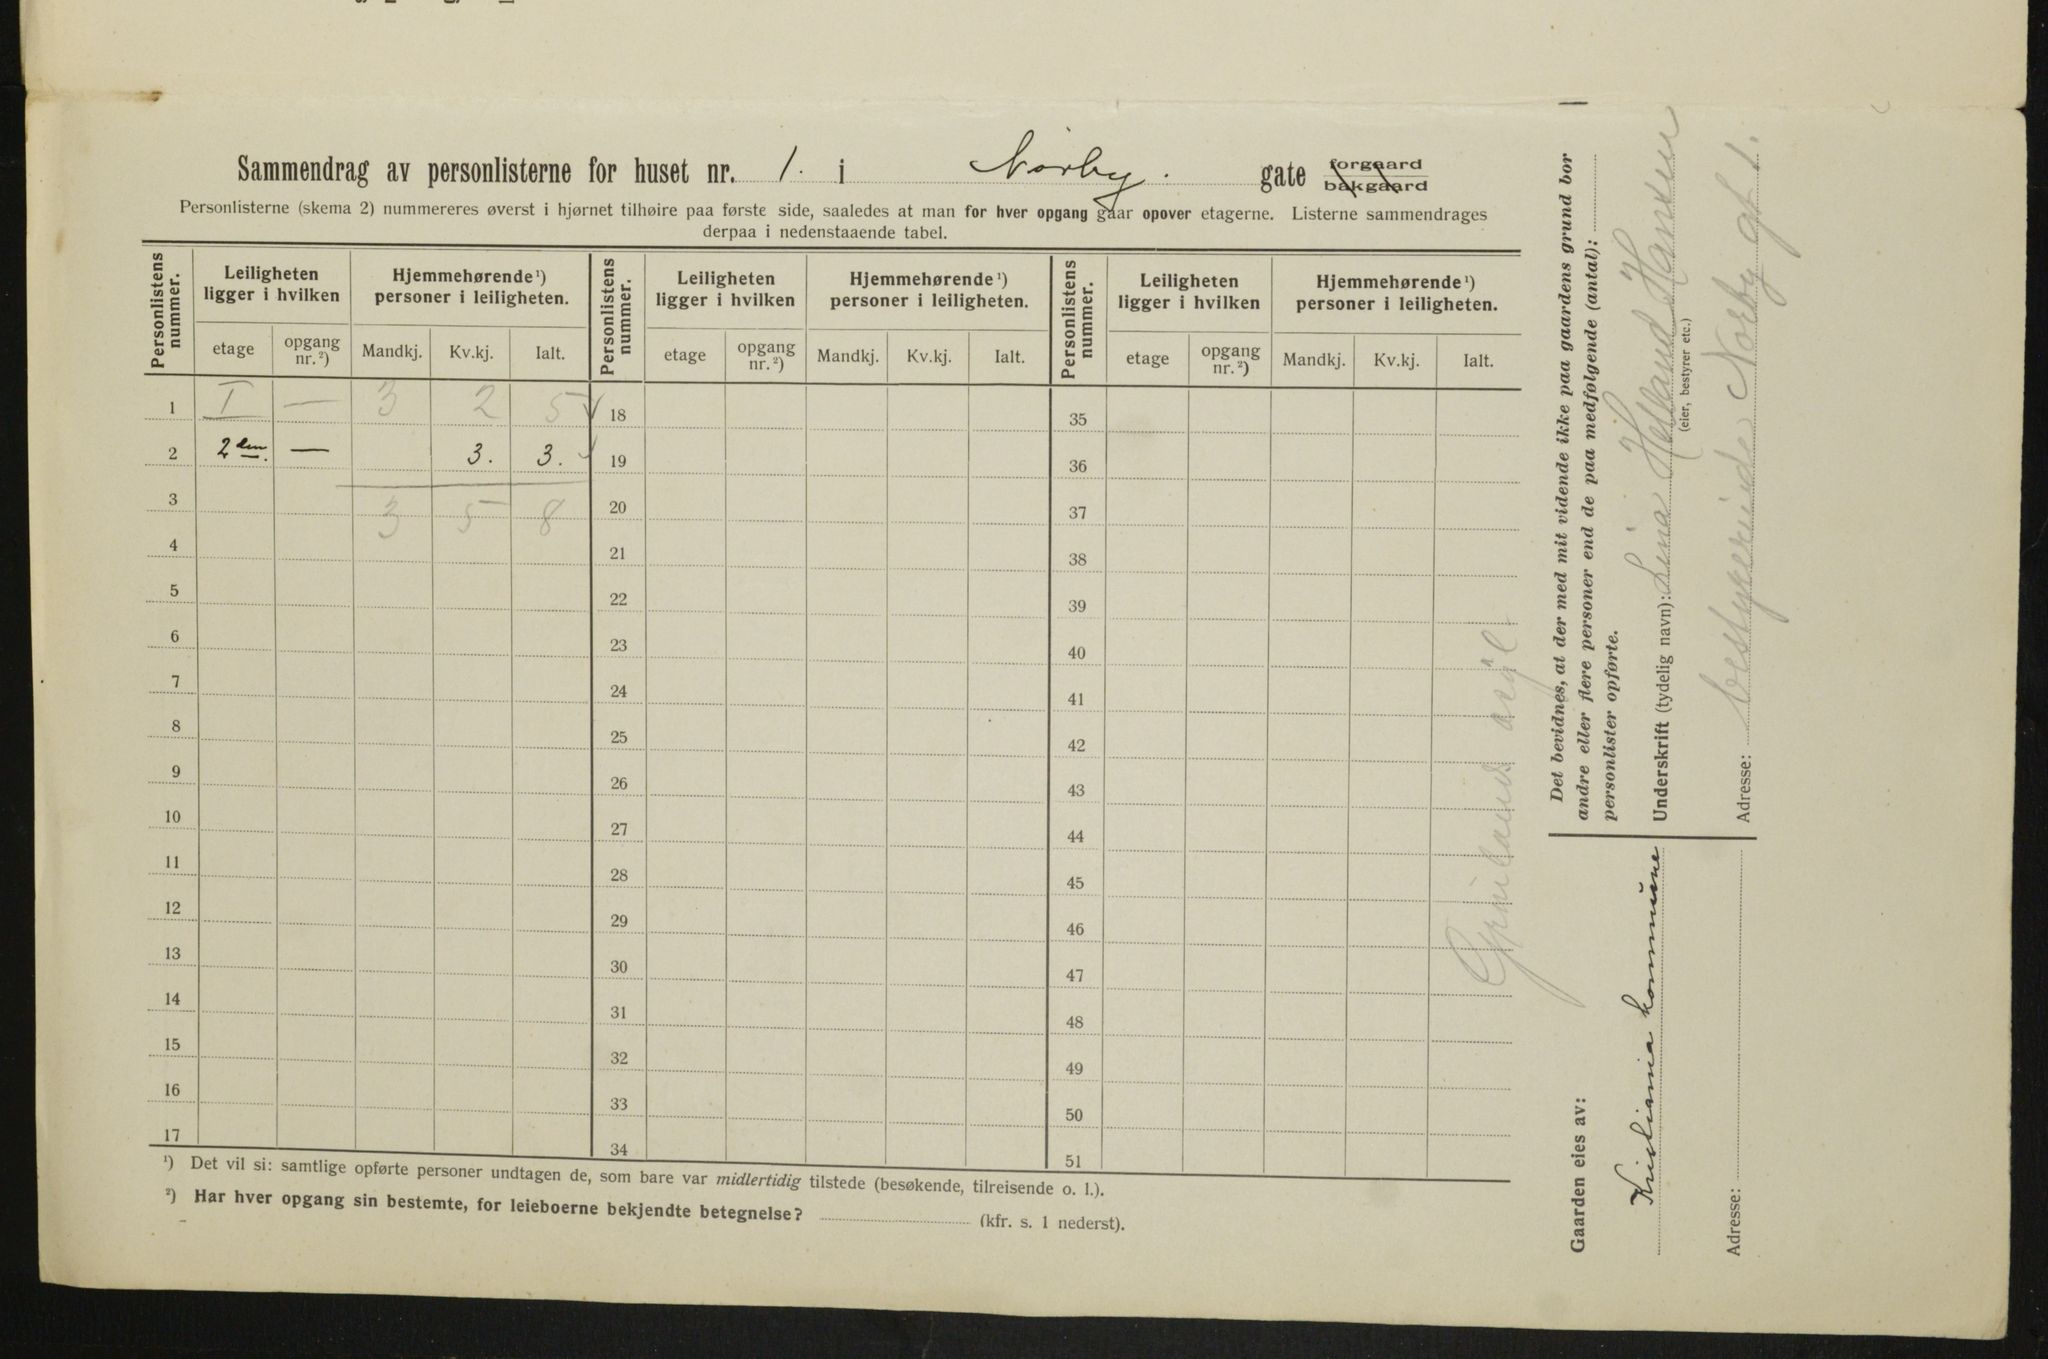 Sammendrag av personlisterne for huset nr. 1. i Nörby. gate forgaard bakgaard
Personlisterne (skema 2) nummereres øverst i hjørnet tilhøire paa første side, saaledes at man for hver opgang gaar opover etagerne. Listerne sammendrages
derpaa i nedenstaaende tabel.
Personlistens nummer. Leiligheten ligger i hvilken Hjemmehørende ¹) personer i leiligheten. Personlistens nummer. Leiligheten ligger i hvilken Hjemmehørende ¹) personer i leiligheten. Personlistens nummer. Leiligheten ligger i hvilken Hjemmehørende ¹) personer i leiligheten.
etage opgang nr. ²) Mandkj. Kv.kj. Ialt. etage opgang nr. ²) Mandkj. Kv.kj. Ialt. etage opgang nr. ²) Mandkj. Kv.kj. Ialt.
1 I — 3 2 5 18 35
2 2den. — 3. 3. 19 36
3 3 5 8 20 37
4 21 38
5 22 39
6 23 40
7 24 41
8 25 42
9 26 43
10 27 44
11 28 45
12 29 46
13 30 47
14 31 48
15 32 49
16 33 50
17 34 51
¹) Det vil si: samtlige opførte personer undtagen de, som bare var midlertidig tilstede (besøkende, tilreisende o. l.).
²) Har hver opgang sin bestemte, for leieboerne bekjendte betegnelse? (kfr. s. 1 nederst).
Det bevidnes, at der med mit vidende ikke paa gaardens grund bor
andre eller flere personer end de paa medfølgende (antal):
personlister opførte.
Underskrift (tydelig navn): Lina Helland Hansen
(eier, bestyrer etc.)
Adresse: bestyrerinde Norby gt 1.
Gaarden eies av:
Kristiania kommune
Adresse: